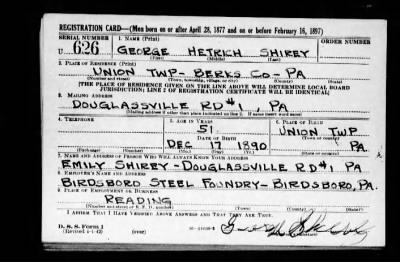 REGISTRATION CARD—(Men born on or after April 28, 1877 and on or before February 16, 1897)
SERIAL NUMBER 1. NAME (Print) ORDER NUMBER
U 626 GEORGE HETRICH SHIREY
(First) (Middle) (Last)
2. PLACE OF RESIDENCE (Print)
UNION TWP - BERKS CO - PA
(Number and street) (Town, township, village, or city) (County) (State)
[THE PLACE OF RESIDENCE GIVEN ON THE LINE ABOVE WILL DETERMINE LOCAL BOARD
JURISDICTION; LINE 2 OF REGISTRATION CERTIFICATE WILL BE IDENTICAL]
3. MAILING ADDRESS
DOUGLASSVILLE RD #1 PA
[Mailing address if other than place indicated on line 2. If same insert word same]
4. TELEPHONE 5. AGE IN YEARS 6. PLACE OF BIRTH
51 UNION TWP
DATE OF BIRTH (Town or county)
DEC 17 1890 PA.
(Exchange) (Number) (Mo.) (Day) (Yr.) (State or country)
7. NAME AND ADDRESS OF PERSON WHO WILL ALWAYS KNOW YOUR ADDRESS
EMILY SHIREY - DOUGLASSVILLE RD #1 PA
8. EMPLOYER'S NAME AND ADDRESS
BIRDSBORO STEEL FOUNDRY - BIRDSBORO, PA.
9. PLACE OF EMPLOYMENT OR BUSINESS
READING
(Number and street or R. F. D. number) (Town) (County) (State)
I AFFIRM THAT I HAVE VERIFIED ABOVE ANSWERS AND THAT THEY ARE TRUE.
D. S. S. Form 1
(Revised 4-1-42) (over)